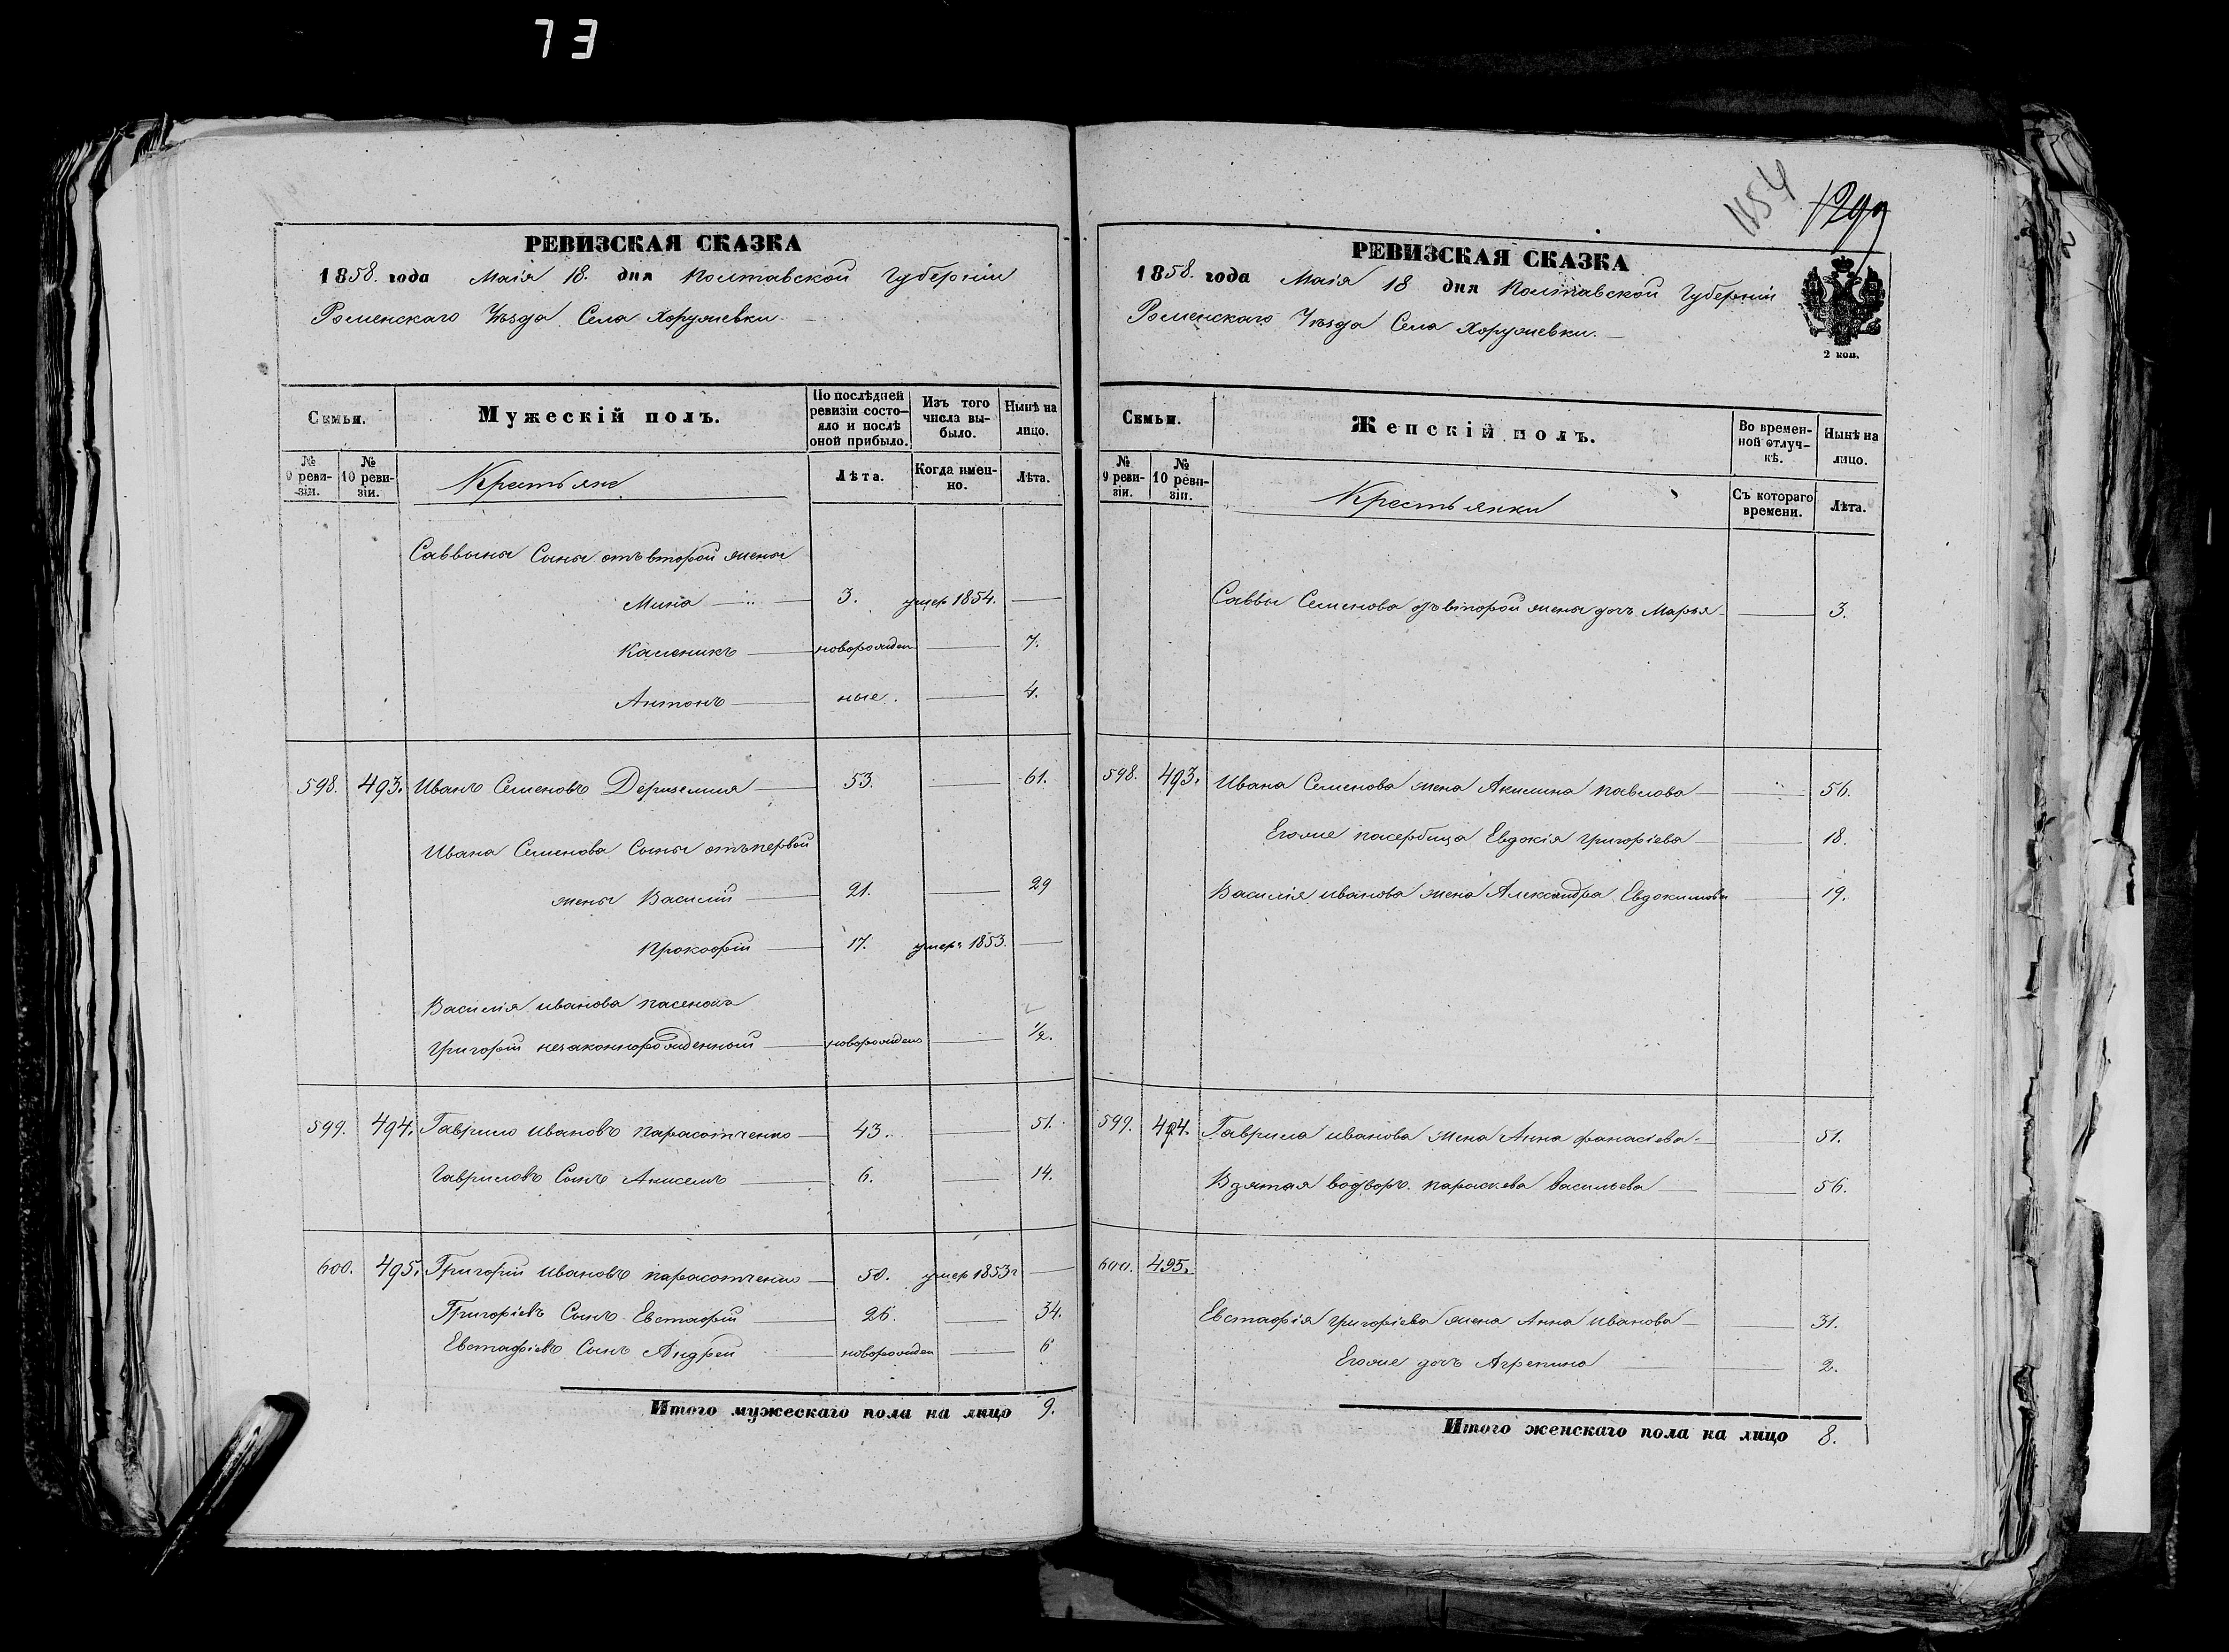 73
1154
1299
РЕВИЗСКАЯ СКАЗКА
1858. года Маія 18. дня Полтавской Губерніи
Роменскаго Уѣзда Села Хоружевки.
Семьи.
Мужескій полъ.
По послѣдней ревизіи состояло и послѣ оной прибыло.
Изъ того числа выбыло.
Нынѣ на лицо.
№ 9 ревизіи.
№ 10 ревизіи.
Крестьяне
Лѣта.
Когда именно.
Лѣта.
Саввины Сыны отъ второй жены
Мина 3. умер 1854.
Каленикъ новорожден 7.
Антонъ ные. 4.
598. 493. Иванъ Семеновъ Деригемля 53. 61.
Ивана Семенова Сыны отъ первой
жены Василій 21. 29
Прокофій 17. умеръ 1853.
Василія Иванова пасенокъ
Григорій незаконнорожденный новорожден 1/2.
599. 494. Гаврило Ивановъ Парасотченко 43. 51.
Гавриловъ Сынъ Анисемъ 6. 14.
600. 495. Григорій Ивановъ Парасотченко 50. умер 1853г
Григоріевъ Сынъ Евстафій 26. 34.
Евстафіевъ Сынъ Андрей новорожден 6
Итого мужескаго пола на лицо 9.
РЕВИЗСКАЯ СКАЗКА
1858. года Маія 18 дня Полтавской Губерніи
Роменскаго Уѣзда Села Хоружевки.
2 коп.
Семьи.
Женскій полъ.
Во временной отлучкѣ.
Нынѣ на лицо.
№ 9 ревизіи.
№ 10 ревизіи.
Крестьянки
Съ котораго времени.
Лѣта.
Саввы Семенова отъ второй жены дочь Марья 3.
598. 493. Ивана Семенова жена Акилина Павлова 56.
Егоже пасербица Евдокія Григоріева 18.
Василія Иванова жена Александра Евдокимова 19.
599. 494. Гаврила Иванова жена Анна Фанасіева 51.
Взятая водворъ Параскева Васильева 56.
600. 495.
Евстафія Григоріева жена Анна Иванова 31.
Егоже дочь Агрепина 2.
Итого женскаго пола на лицо 8.